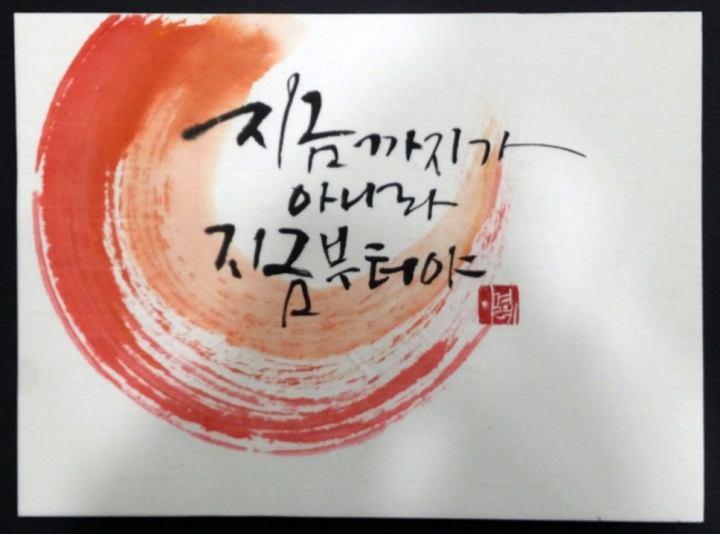 지금까지가
아니라
지금부터야